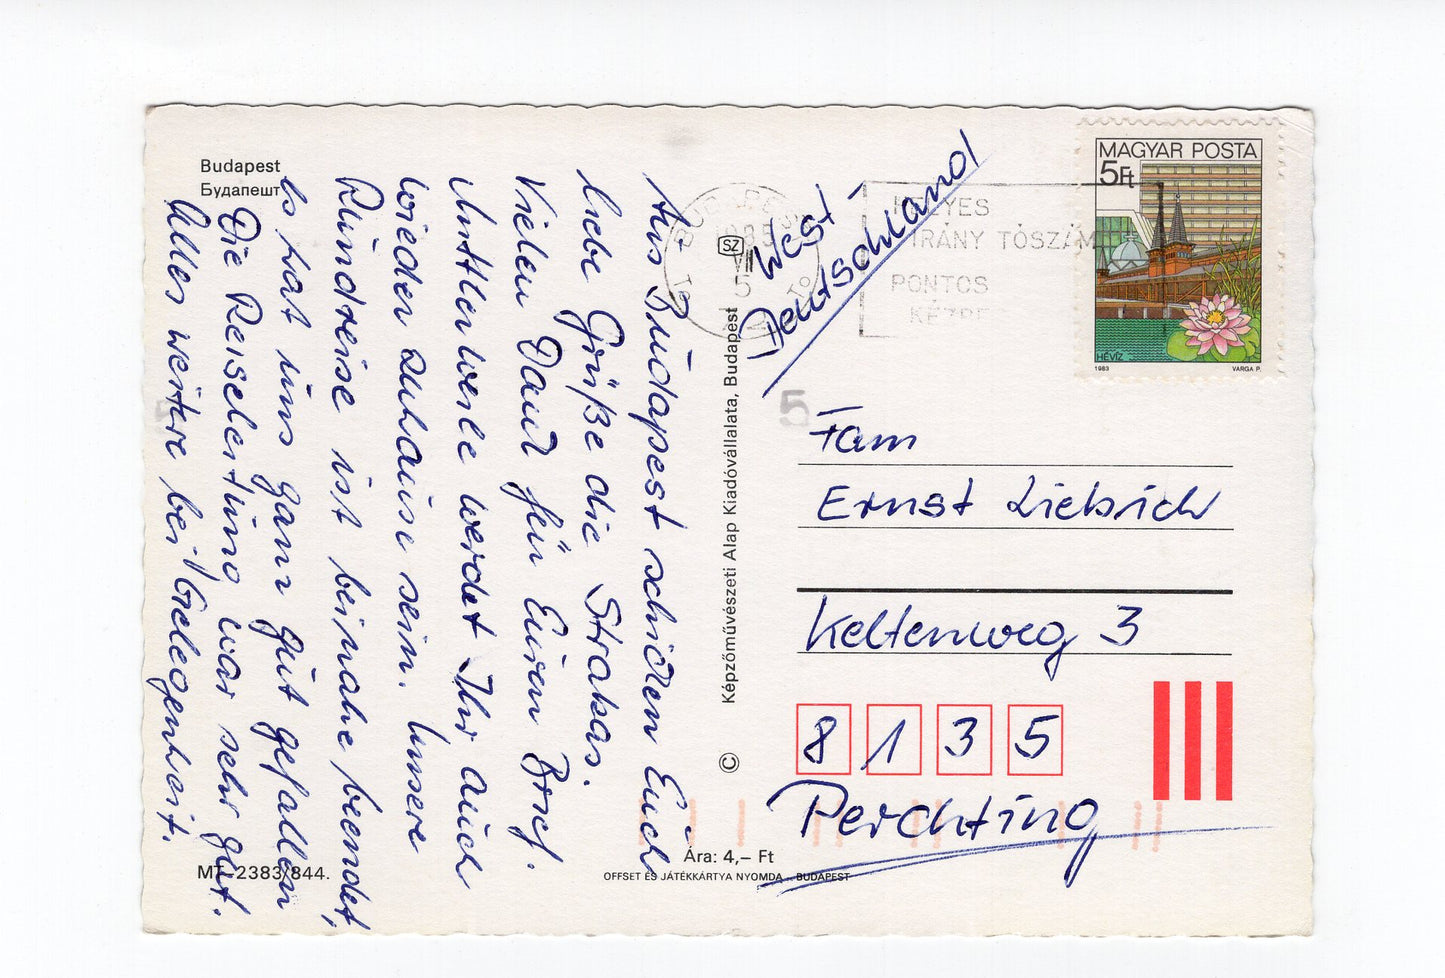 Budapest
Будапешт
Aus Budapest schicken Euch
liebe Grüße die Strakas.
Vielen Dank für Euren Brief.
Mittlerweile werdet Ihr auch
wieder zuhause sein. Unsere
Rundreise ist beinahe beendet,
es hat uns ganz gut gefallen
Die Reiseleitung war sehr gut.
Alles weitere bei Gelegenheit.
MT-2383/844.
Képzőművészeti Alap Kiadóvállalata, Budapest
©
SZ
Ára: 4,– Ft
OFFSET ÉS JÁTÉKKÁRTYA NYOMDA – BUDAPEST
BUDAPEST
1985
VII
5
IRÁNYÍTÓSZÁM
PONTOS
KÉZBE
MAGYAR POSTA
5Ft
HÉVÍZ
1983
VARGA P.
West-
Deutschland
5
Fam
Ernst Liebrich
Keltenweg 3
8135
Perchting